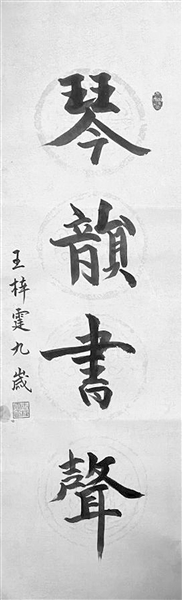 琴韻書聲
王梓霆九歲